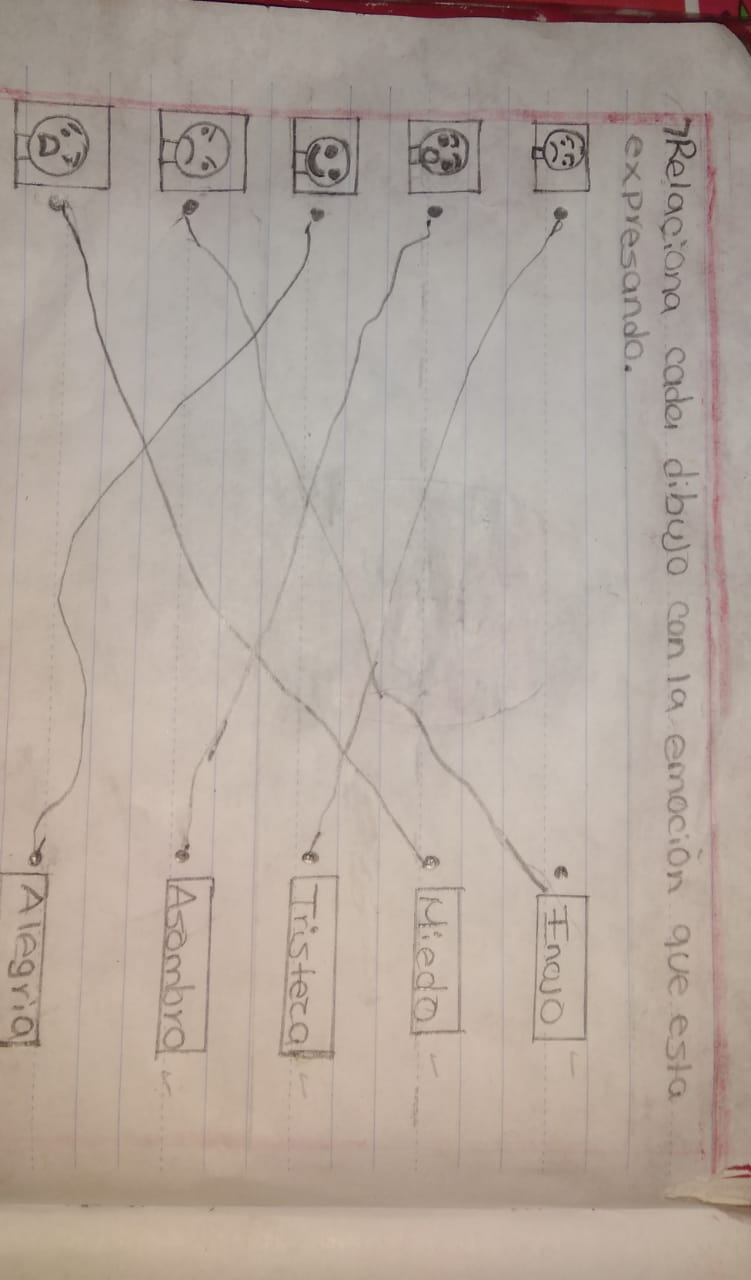 7 Relaciona cada dibujo con la emoción que esta
expresando.
Enojo
Miedo
Tristeza
Asombro
Alegria